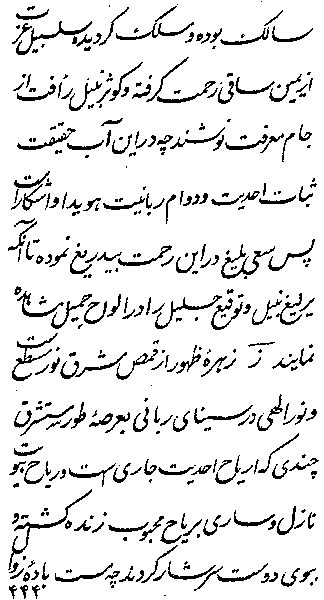 سالک بوده و سلک گردیده سلسبیل عزت
از یمین ساقی رحمت گرفته و کوثر نیل رأفت از
جام معرفت نوشند چه در این آب حقیقت
ثبات احدیت و دوام ربانیت هویدا و آشکار است
پس سعی بلیغ در این رحمت بیدریغ نموده تا آنکه
یرلیغ نبیل و توقیع جلیل را در الواح جمیل مشاهده
نمایند ز زهرهٔ ظهور از قمص مشرق نور ساطع است
و نور الهی در سینای ربانی بعرصهٔ طور مستشرق
چندی که اریاح احدیت جاری است و ریاح هویت
نازل و ساری بریاح محبوب زنده گشته و
ببوی دوست سرشار گردند چه ست باده زوال
۴۴۴